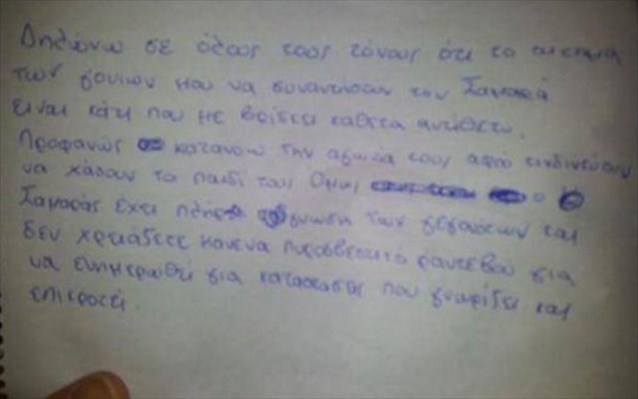 Δηλώνω σε όλους τους τόνους ότι το αιτημα
των γονιων μου να συναντισουν τον Σαμαρά
ειναι κάτι που με βρίσκει καθετα αντίθετο.
Προφανώς κατανοω την αγωνια τους αφού κινδινεύουν
να χάσουν το παιδί τους Ομως ο
Σαμαράς έχει πλήρη γνωση των γεγονότων και
δεν χρειάζετε κανενα πυροσβεστικό ραντεβού για
να ενημερωθεί για καταστασεις που γνωρίζει και
επικροτεί.